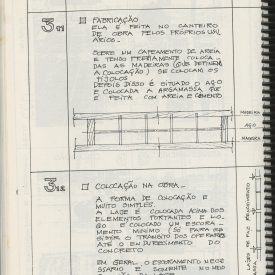 3.11
□ FABRICAÇÃO
ELA É FEITA NO CANTEIRO
DE OBRA PELOS PRÓPRIOS USU
ÁRIOS.
SOBRE UM CAPEAMENTO DE AREIA
E TENDO PREVIAMENTE COLOCA
DAS AS MADEIRAS (QUE DEFINEM
A COLOCAÇÃO) SE COLOCAM OS
TIJOLOS
DEPOIS DISSO É SITUADO O AÇO
E COLOCADA A ARGAMASSA QUE
É FEITA COM AREIA E CIMENTO
MADEIRA
AÇO
MADEIRA
3.12
□ COLOCAÇÃO NA OBRA
A FORMA DE COLOCAÇÃO É
MUITO SIMPLES.
A LAJE É COLOCADA ACIMA DOS
ELEMENTOS PORTANTES E LO
GO É COLOCADO UM ESCORA
MENTO MÍNIMO (SÓ PARA
O TRÂNSITO DOS OPERÁRIOS
ATÉ O ENDURECIMENTO DO
CONCRETO
EM GERAL O ESCORAMENTO NECE
SSÁRIO É SOMENTE NO MEIO